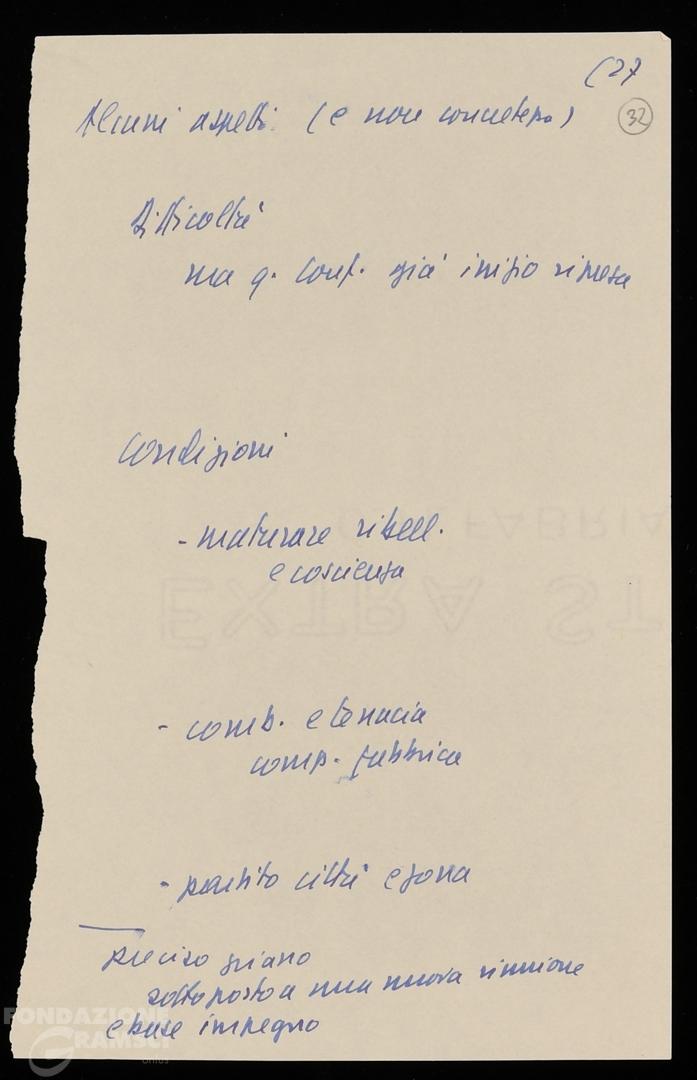 (27
32
Alcuni aspetti (e non concretezza)
Difficoltà
ma q. conf. già inizio ripresa
Condizioni
- maturare ribell.
e coscienza
- comb. e tenacia
comp. fabbrica
- partito città e zona
preciso piano
sottoposto a una nuova riunione
e base impegno
FABRIA
EXTRA ST
FONDAZIONE
GRAMSCI
onlus